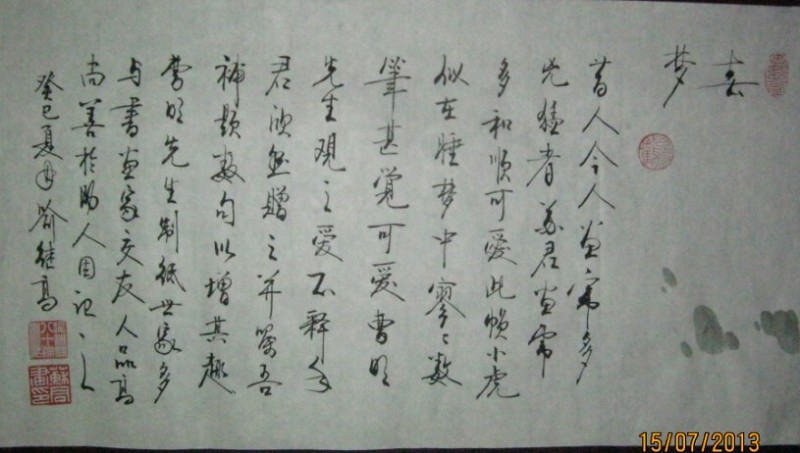 梦
昔人今人画虎多
凶猛者苏君画虎
多和顺可爱此帧小虎
似在睡梦中寥〻数
筆甚覚可爱曹明
先生观之爱不释手
君欣然赠之并嘱吾
補题数句以增其趣
曹明先生制纸世家多
与書画家交友人品高
尚善於助人因记之
癸巳夏月喻继高
15/07/2013